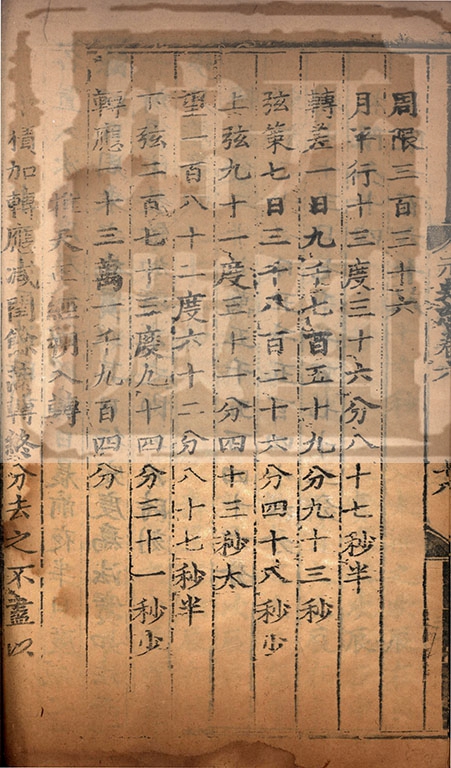 元史志卷六
十八
周限三百三十六
月平行十三度三十六分八十七秒半
轉差一日九千七百五十九分九十三秒
弦策七日三千八百二十六分四十八秒少
上弦九十一度三十一分四十三秒太
望一百八十二度六十二分八十七秒半
下弦二百七十三度九十四分三十一秒少
轉應一十三萬一千九百四分
推天正經朔入轉
積加轉應减閏餘滿轉終分去之不盡以